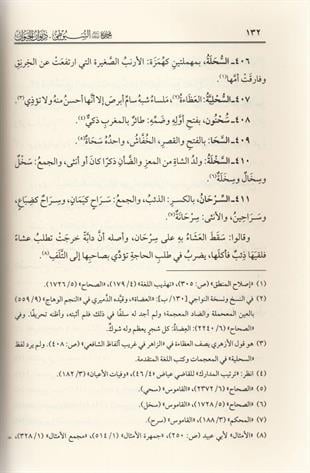 ١٣٢
٤٠٦ـ السُّحَلَةُ، بمهملتين كهُمَزَة: الأرنبُ الصَّغيرة التي ارتفعَتْ عن الخِرنِقِ
وفارقَتْ أمَّها(١).
٤٠٧ـ السُّحْلِيَّةُ: العَظاءَةُ(٢)، مَلساءُ شبهُ سامِّ أبرصَ إلا أنَّها أحسنُ منهُ ولا تؤذي(٣).
٤٠٨ـ سُحْنُون، بفتح أوَّلِهِ وضَمِّهِ: طائرٌ بالمغربِ ذكيٌّ(٤).
٤٠٩ـ السَّحَا: بالفتحِ والقصرِ، الخُفَّاش، واحدُهُ سَحَاةٌ(٥).
٤١٠ـ السَّخْلَةُ: ولدُ الشاةِ من المعزِ والضَّأنِ ذكرًا كانَ أو أنثى، والجمع: سَخْلٌ
وسِخَالٌ وسِخلَةٌ(٦).
٤١١ـ السِّرْحَانُ، بالكسرِ: الذئبُ، والجمعُ: سَرَاحٍ كيَمَانٍ، وسِرَاحٌ كضِبَاعٍ،
وسَرَاحِينُ، والأنثى: سِرْحَانَةٌ(٧).
وقالوا: سَقَطَ العَشَاءُ بهِ على سِرْحَان، وأصله أنَّ دابَّةً خرجَتْ تطلبُ عشاءً
فلقيَهَا ذئبٌ فأكلَها، يضربُ في طلبِ الحاجةِ تؤدِّي بصاحبِها إلى التَّلَفِ(٨).
(١) «إصلاح المنطق» (ص: ٣٠٥)، «تهذيب اللغة» (٤/ ١٧٩)، «الصحاح» (٥/ ١٧٢٦).
(٢) في النسخ ونسخة النواجي (١٣٠/ ب): «العضاه»، وقيَّده الدَّميري في «النجم الوهاج» (٩/ ٥٥٩)
بالعين المهملة والضاد المعجمة! ولم أجد له سلفًا في ذلك؛ فلم أثبته، وأظنه تحريفًا. وفي
«الصحاح» (٦/ ٢٢٤٠): العِضاهُ: كل شجرٍ يعظم وله شوكٌ.
(٣) هو قول الأزهري يصف العظاءة في «الزاهر في غريب ألفاظ الشافعي» (ص: ٤٠٨). ولم يرد لفظ
«السحلية» في المعجمات وكتب اللغة المتقدمة.
(٤) انظر: «ترتيب المدارك» للقاضي عياض (٤/ ٤٦)، «وفيات الأعيان» (٣/ ١٨٢).
(٥) «الصحاح» (٦/ ٢٣٧٢)، «القاموس» (سحي).
(٦) «الصحاح» (٥/ ١٧٢٨)، «القاموس» (سخل).
(٧) «المحكم» (٣/ ١٨٨)، «القاموس» (سرح).
(٨) «الأمثال» لأبي عبيد (ص: ٢٥٠)، «جمهرة الأمثال» (١/ ٥١٤)، «مجمع الأمثال» (١/ ٣٢٨)،